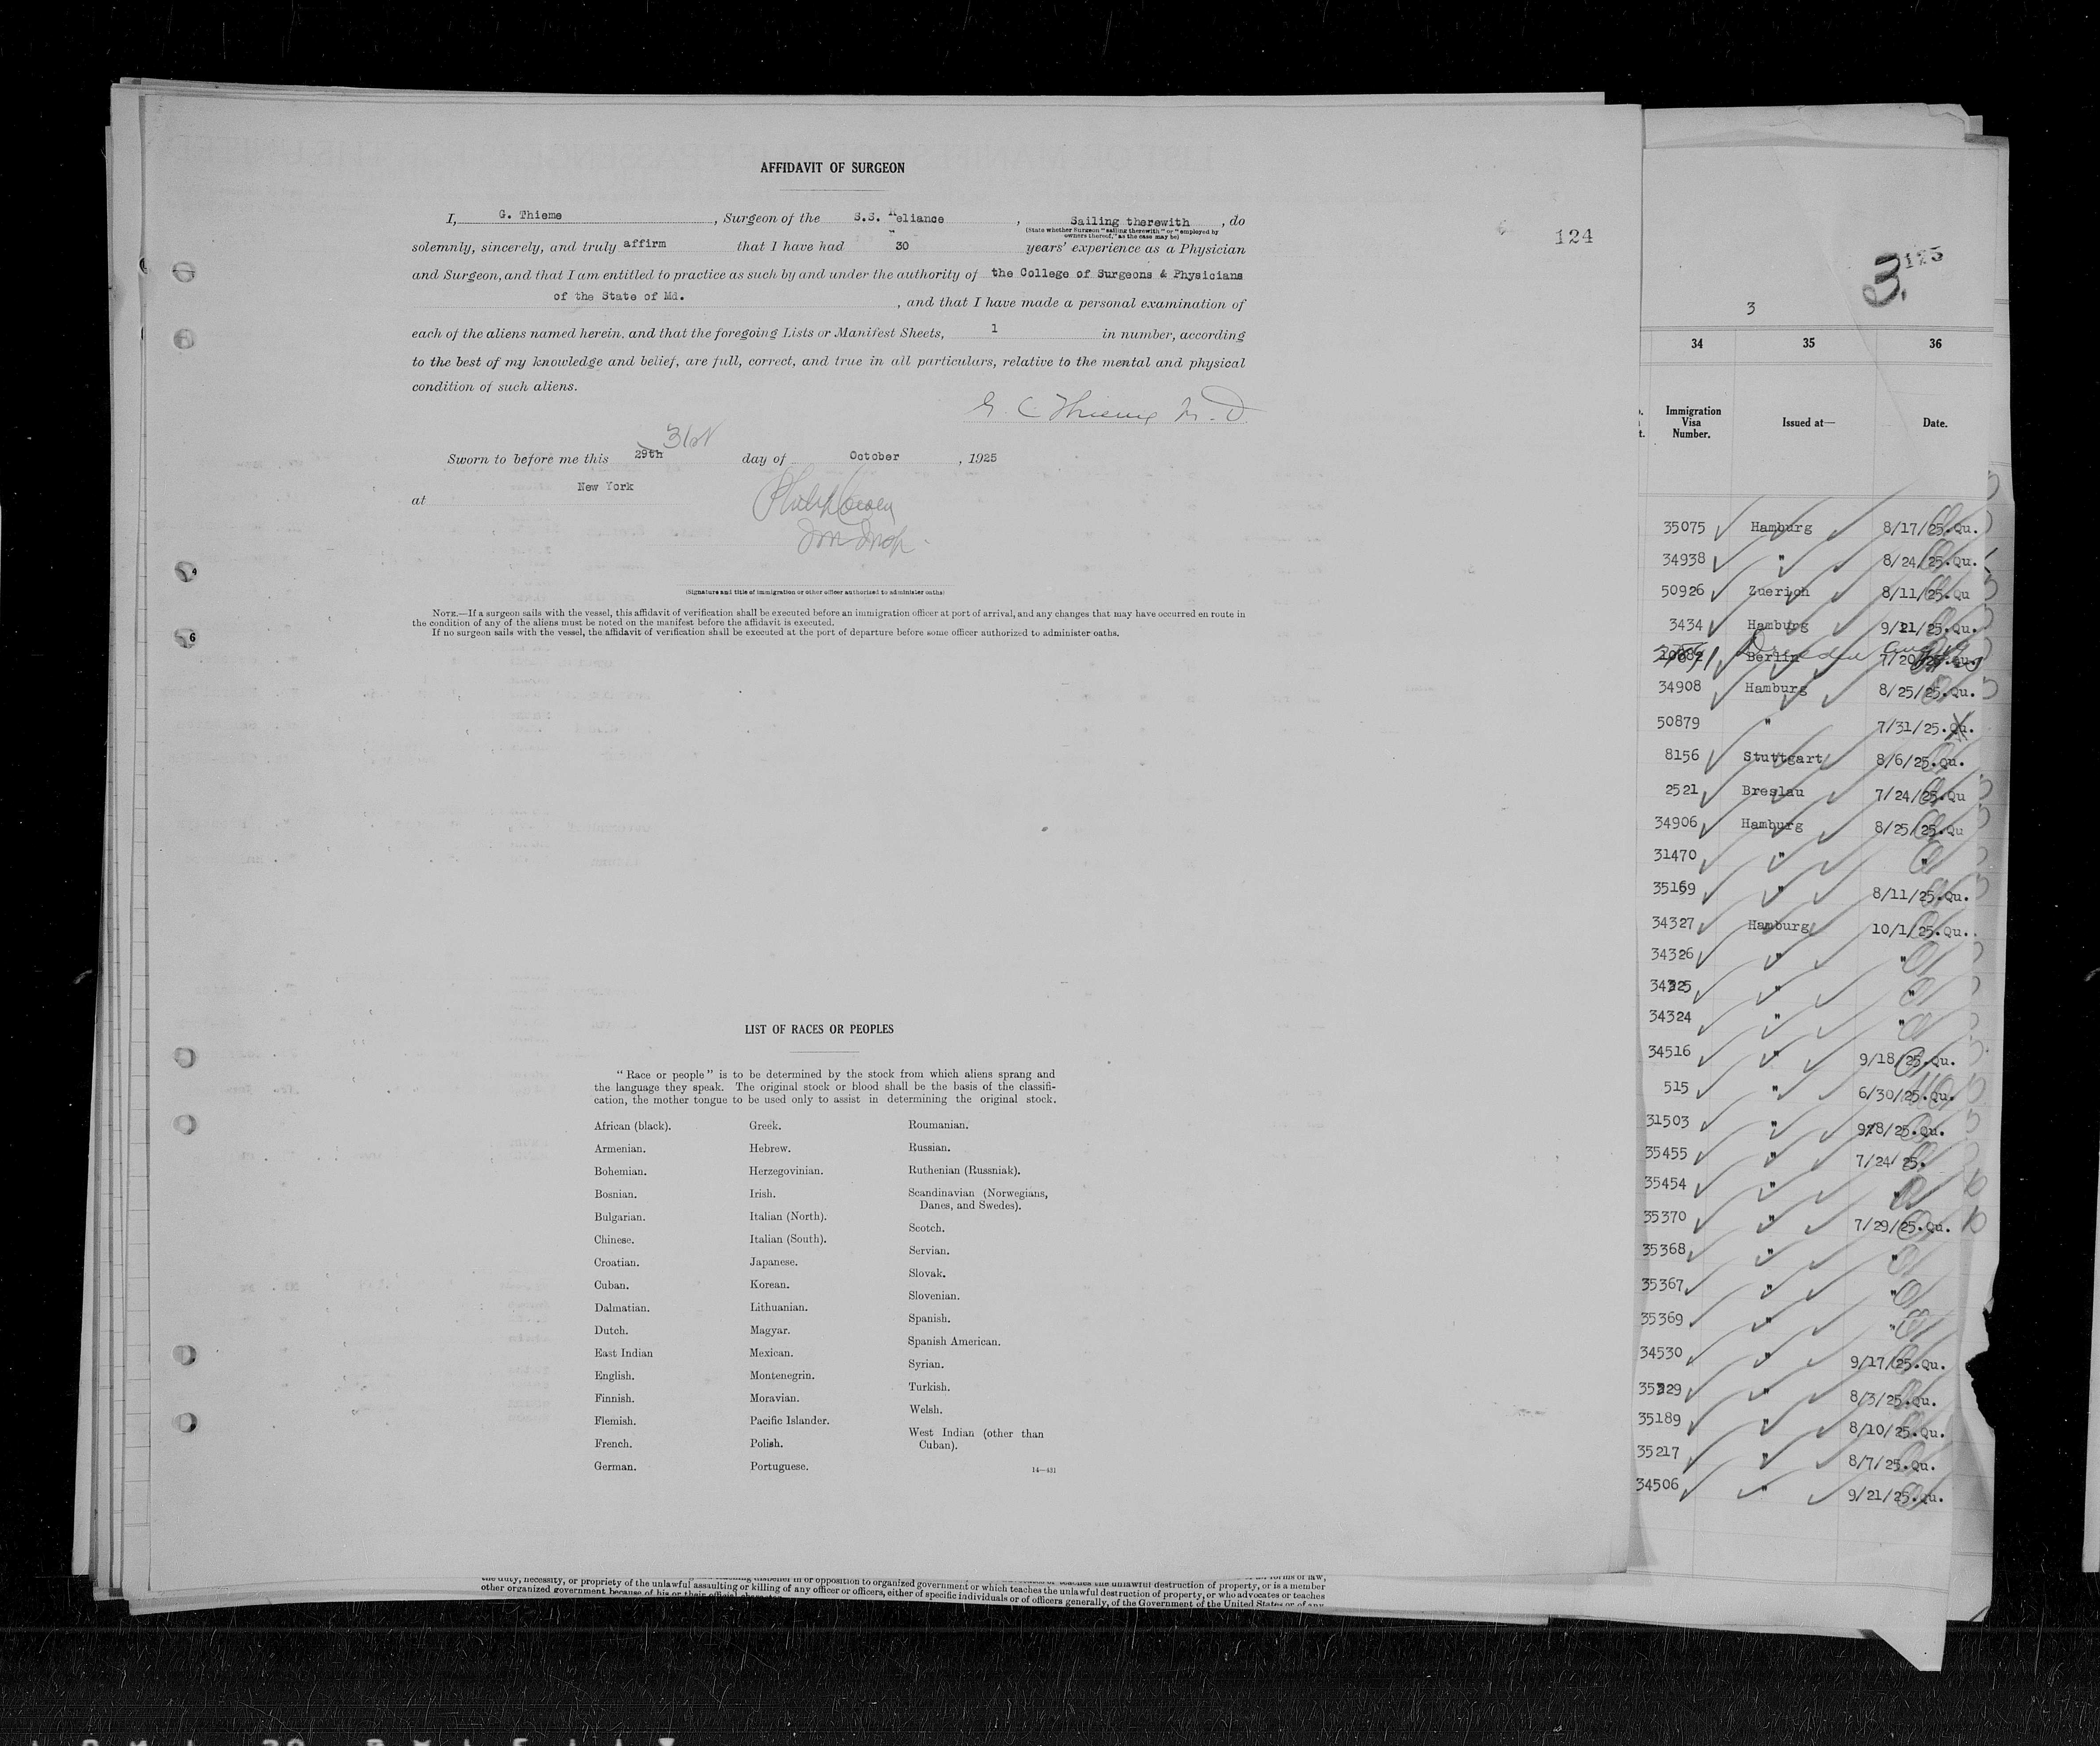 AFFIDAVIT OF SURGEON
I, G. Thieme , Surgeon of the S.S. Reliance , Sailing therewith , do
(State whether Surgeon "sailing therewith" or "employed by
owners thereof," as the case may be)
solemnly, sincerely, and truly affirm that I have had 30 years' experience as a Physician
and Surgeon, and that I am entitled to practice as such by and under the authority of the College of Surgeons & Physicians
of the State of Md. , and that I have made a personal examination of
each of the aliens named herein, and that the foregoing Lists or Manifest Sheets, 1 in number, according
to the best of my knowledge and belief, are full, correct, and true in all particulars, relative to the mental and physical
condition of such aliens.
G. C Thieme M. D
31st
Sworn to before me this 29th day of October , 1925
at New York
(Signature and title of immigration or other officer authorized to administer oaths)
NOTE.—If a surgeon sails with the vessel, this affidavit of verification shall be executed before an immigration officer at port of arrival, and any changes that may have occurred en route in
the condition of any of the aliens must be noted on the manifest before the affidavit is executed.
If no surgeon sails with the vessel, the affidavit of verification shall be executed at the port of departure before some officer authorized to administer oaths.
LIST OF RACES OR PEOPLES
"Race or people" is to be determined by the stock from which aliens sprang and
the language they speak. The original stock or blood shall be the basis of the classifi-
cation, the mother tongue to be used only to assist in determining the original stock.
African (black).
Armenian.
Bohemian.
Bosnian.
Bulgarian.
Chinese.
Croatian.
Cuban.
Dalmatian.
Dutch.
East Indian
English.
Finnish.
Flemish.
French.
German.
Greek.
Hebrew.
Herzegovinian.
Irish.
Italian (North).
Italian (South).
Japanese.
Korean.
Lithuanian.
Magyar.
Mexican.
Montenegrin.
Moravian.
Pacific Islander.
Polish.
Portuguese.
Roumanian.
Russian.
Ruthenian (Russniak).
Scandinavian (Norwegians,
Danes, and Swedes).
Scotch.
Servian.
Slovak.
Slovenian.
Spanish.
Spanish American.
Syrian.
Turkish.
Welsh.
West Indian (other than
Cuban).
14—431
124
6
125
3.
3
34 35 36
Immigration
Visa
Number.
Issued at—
Date.
35075 Hamburg 8/17/25.Qu.
34938 " 8/24/25.Qu.
50926 Zuerich 8/11/25.Qu
3434 Hamburg 9/21/25.Qu.
Dresden
Berlin 7/20/25.Qu.
34908 Hamburg 8/25/25.Qu.
50879 " 7/31/25.Qu.
8156 Stuttgart 8/6/25.Qu.
2521 Breslau 7/24/25.Qu
34906 Hamburg 8/25/25.Qu
31470 " "
35169 " 8/11/25.Qu.
34327 Hamburg 10/1/25.Qu..
34326 " "
34325 " "
34324 " "
34516 " 9/18/25.Qu.
515 " 6/30/25.Qu.
31503 " 9/8/25.Qu.
35455 " 7/24/25.
35454 " "
35370 " 7/29/25.Qu.
35368 " "
35367 " "
35369 " "
34530 " 9/17/25.Qu.
35329 " 8/3/25.Qu.
35189 " 8/10/25.Qu.
35217 " 8/7/25.Qu.
34506 " 9/21/25.Qu.
the duty, necessity, or propriety of the unlawful assaulting or killing of any officer or officers, either of specific individuals or of officers generally, of the Government of the United States or of any
other organized government because of his or their official character
in or opposition to organized government or which teaches the unlawful destruction of property, or is a member
the unlawful destruction of property, or who advocates or teaches